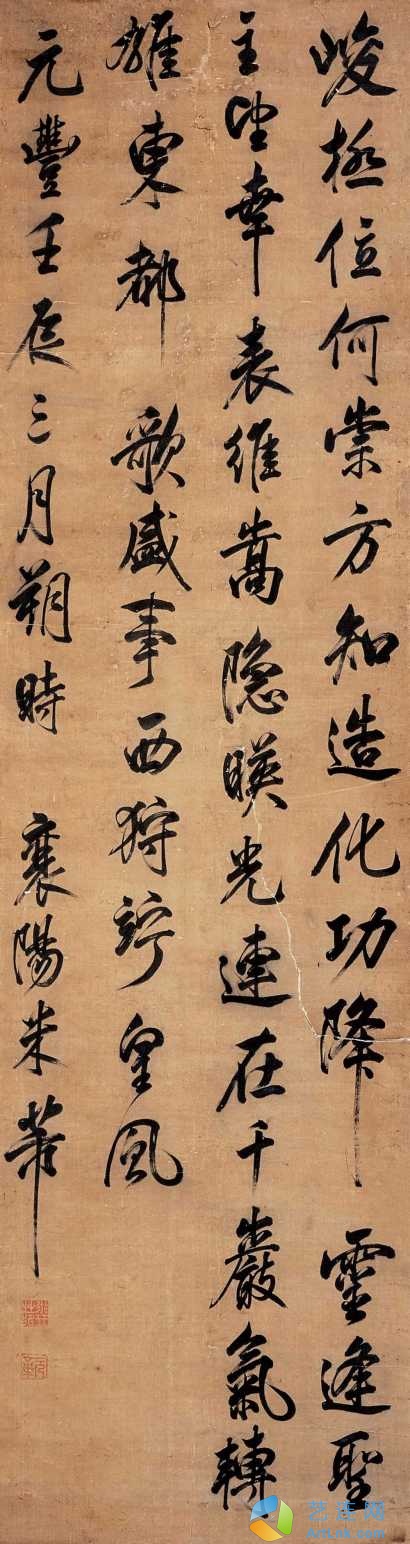 峻極位何崇方知造化功降 靈逢聖
主望幸表維嵩隱暎光連在千巖氣轉
雄東都 歌盛事西狩竚皇風
元豐壬辰三月朔時 襄陽米芾
艺库网